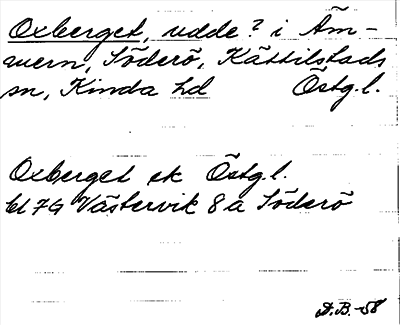 Oxberget, udde? i Äm-
mern, Söderö, Kättilstads
sn, Kinda hd Östg.l.
Oxberget ek Östg.l.
bl 7G Västervik 8a Söderö
A.B. -58